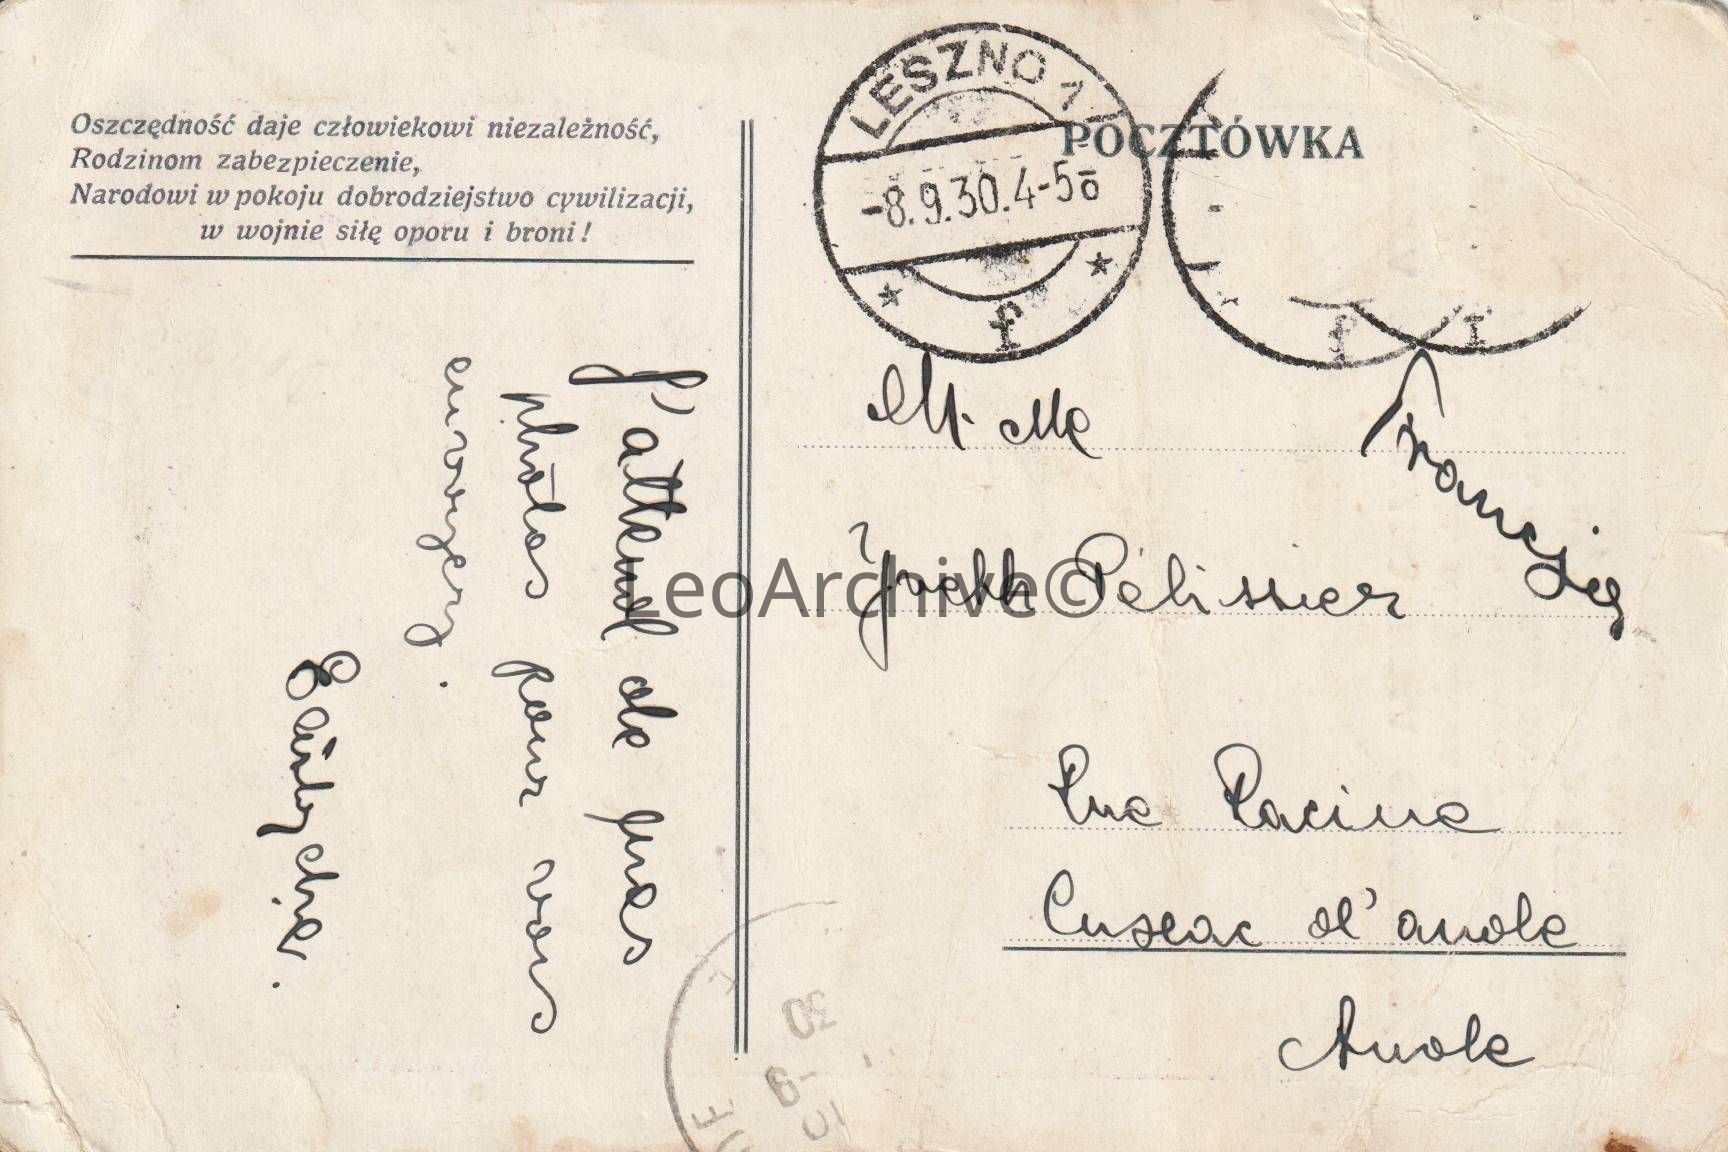 Oszczędność daje człowiekowi niezależność,
Rodzinom zabezpieczenie,
Narodowi w pokoju dobrodziejstwo cywilizacji,
w wojnie siłę oporu i broni!
LESZNO 1
-8.9.30.4-5
f
POCZTÓWKA
f
J'attend de mes
photos pour vous
envoyer.
M. Me
Francja
Yvette Pélissier
LeoArchive©
Rue Racine
Cuxac d'aude
Aude
30
-9